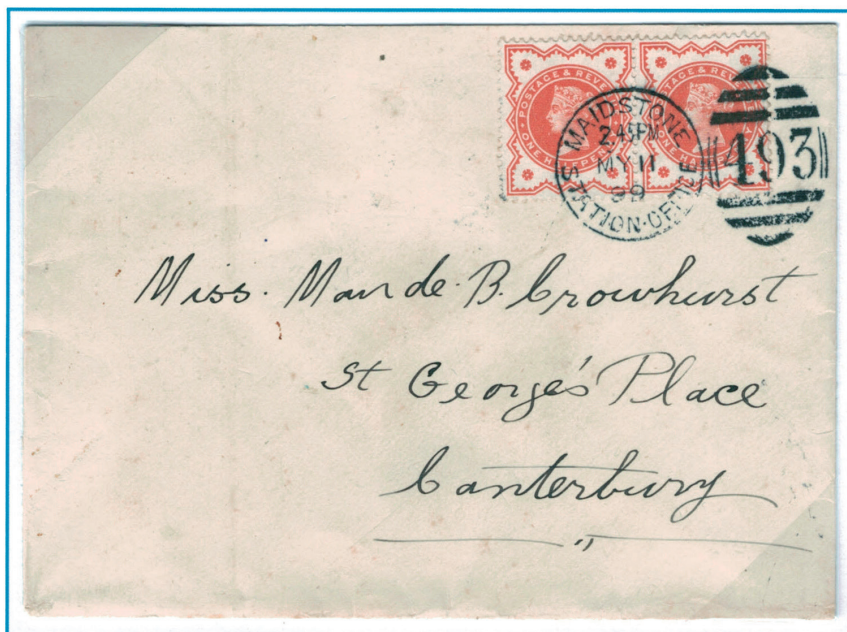 POSTAGE & REVE
ONE HALFPEN
POSTAGE & REVE
ONE HA
MAIDSTONE
2.45PM
MY 11
99
STATION-OFFICE
493
Miss. Maude. B. Crowhurst
St George's Place
Canterbury